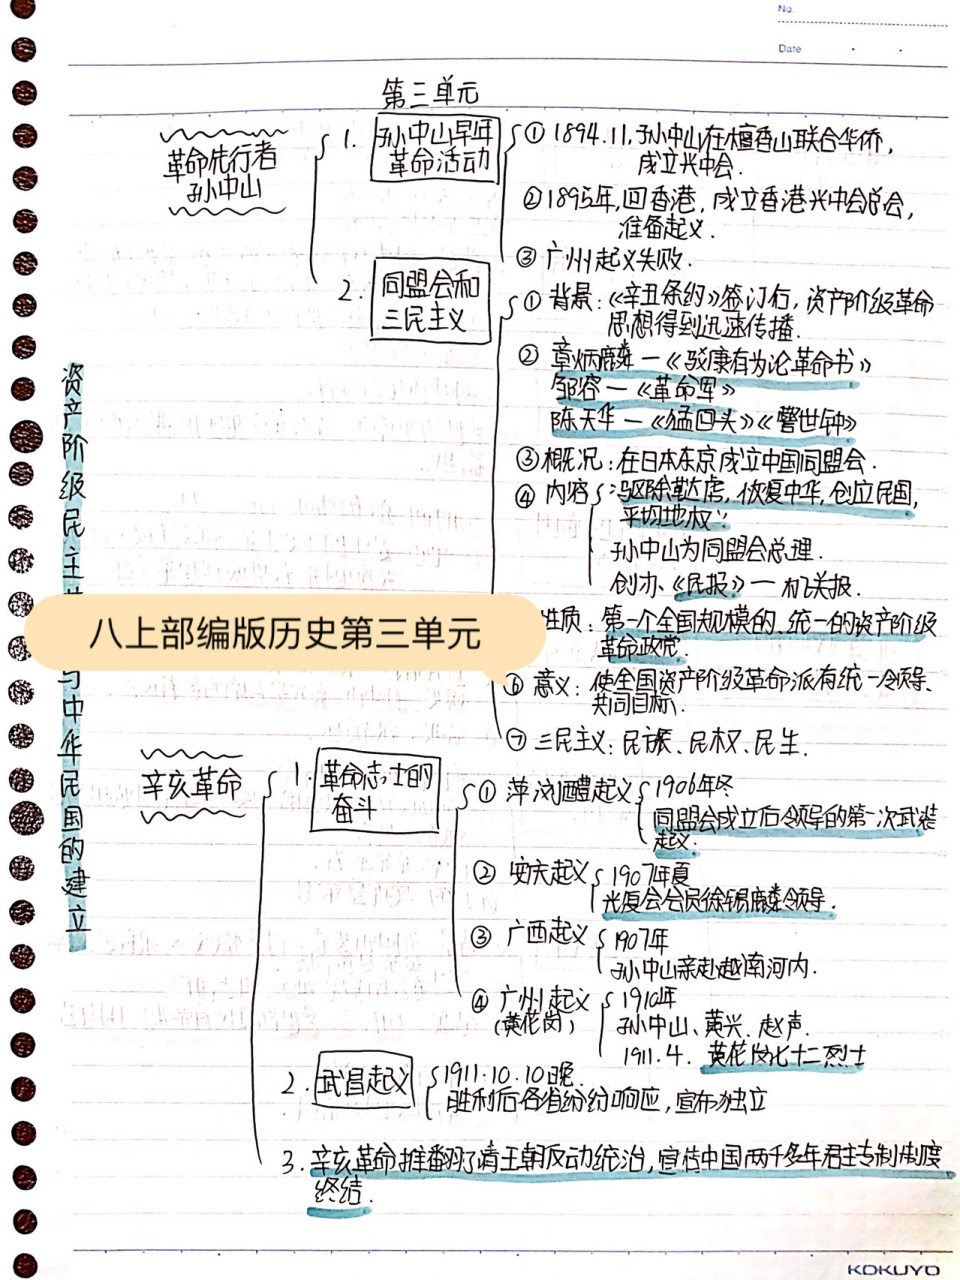 No.
Date
第三单元
革命先行者
孙中山
1. 孙中山早年
革命活动
① 1894.11,孙中山在檀香山联合华侨,
成立兴中会.
② 1895年,回香港,成立香港兴中会总会,
准备起义.
③ 广州起义失败.
2. 同盟会和
三民主义
① 背景:《辛丑条约》签订后,资产阶级革命
思想得到迅速传播.
② 章炳麟—《驳康有为论革命书》
邹容—《革命军》
陈天华—《猛回头》《警世钟》
③ 概况:在日本东京成立中国同盟会.
④ 内容:驱除鞑虏,恢复中华,创立民国,
平均地权
孙中山为同盟会总理.
创办《民报》— 机关报.
性质:第一个全国规模的、统一的资产阶级
革命政党.
⑥ 意义:使全国资产阶级革命派有统一领导、
共同目标.
⑦ 三民主义:民族、民权、民生.
资产阶级民主
与中华民国的建立
八上部编版历史第三单元
辛亥革命
1. 革命志士的
奋斗
① 萍浏醴起义
1906年冬
同盟会成立后领导的第一次武装
起义.
② 安庆起义
1907年夏
光复会会员徐锡麟领导.
③ 广西起义
1907年
孙中山亲赴越南河内.
④ 广州起义
(黄花岗)
1910年
孙中山、黄兴、赵声.
1911.4. 黄花岗七十二烈士
2. 武昌起义
1911.10.10晚.
胜利后各省纷纷响应,宣布独立
3. 辛亥革命推翻了清王朝反动统治,宣告中国两千多年君主专制制度
终结.
KOKUYO